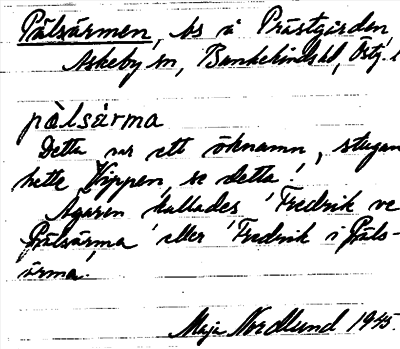 Pälsärmen, bs å Prästgården,
Askeby sn, Bankekinds hd, Östg. l
pälsärma
Detta var ett öknamn, stugan
hette Vippen, se detta!
Ägaren kallades 'Fredrik ve
Pälsärma' eller 'Fredrik i Päls-
ärma.'
Maja Nordlund 1945.